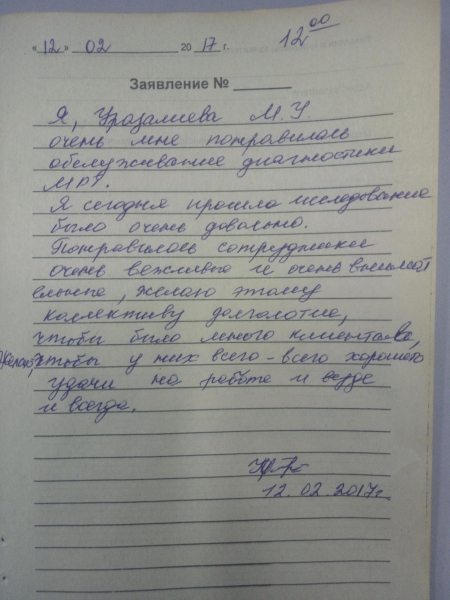 «12» 02 2017 г. 12 00
Заявление №
Я, Уразалиева М.У
очень мне понравилось
обслуживание диагностики
МРТ.
Я сегодня прошла исследование
было очень довольно.
Понравилось сотрудники
очень вежливые и очень внимат
ельные, желаю этому
коллективу долголетие,
чтобы было много клиентов,
Желаю, чтобы у них всего-всего хорошего
удачи на работе и везде
и всегда.
12.02.2017г